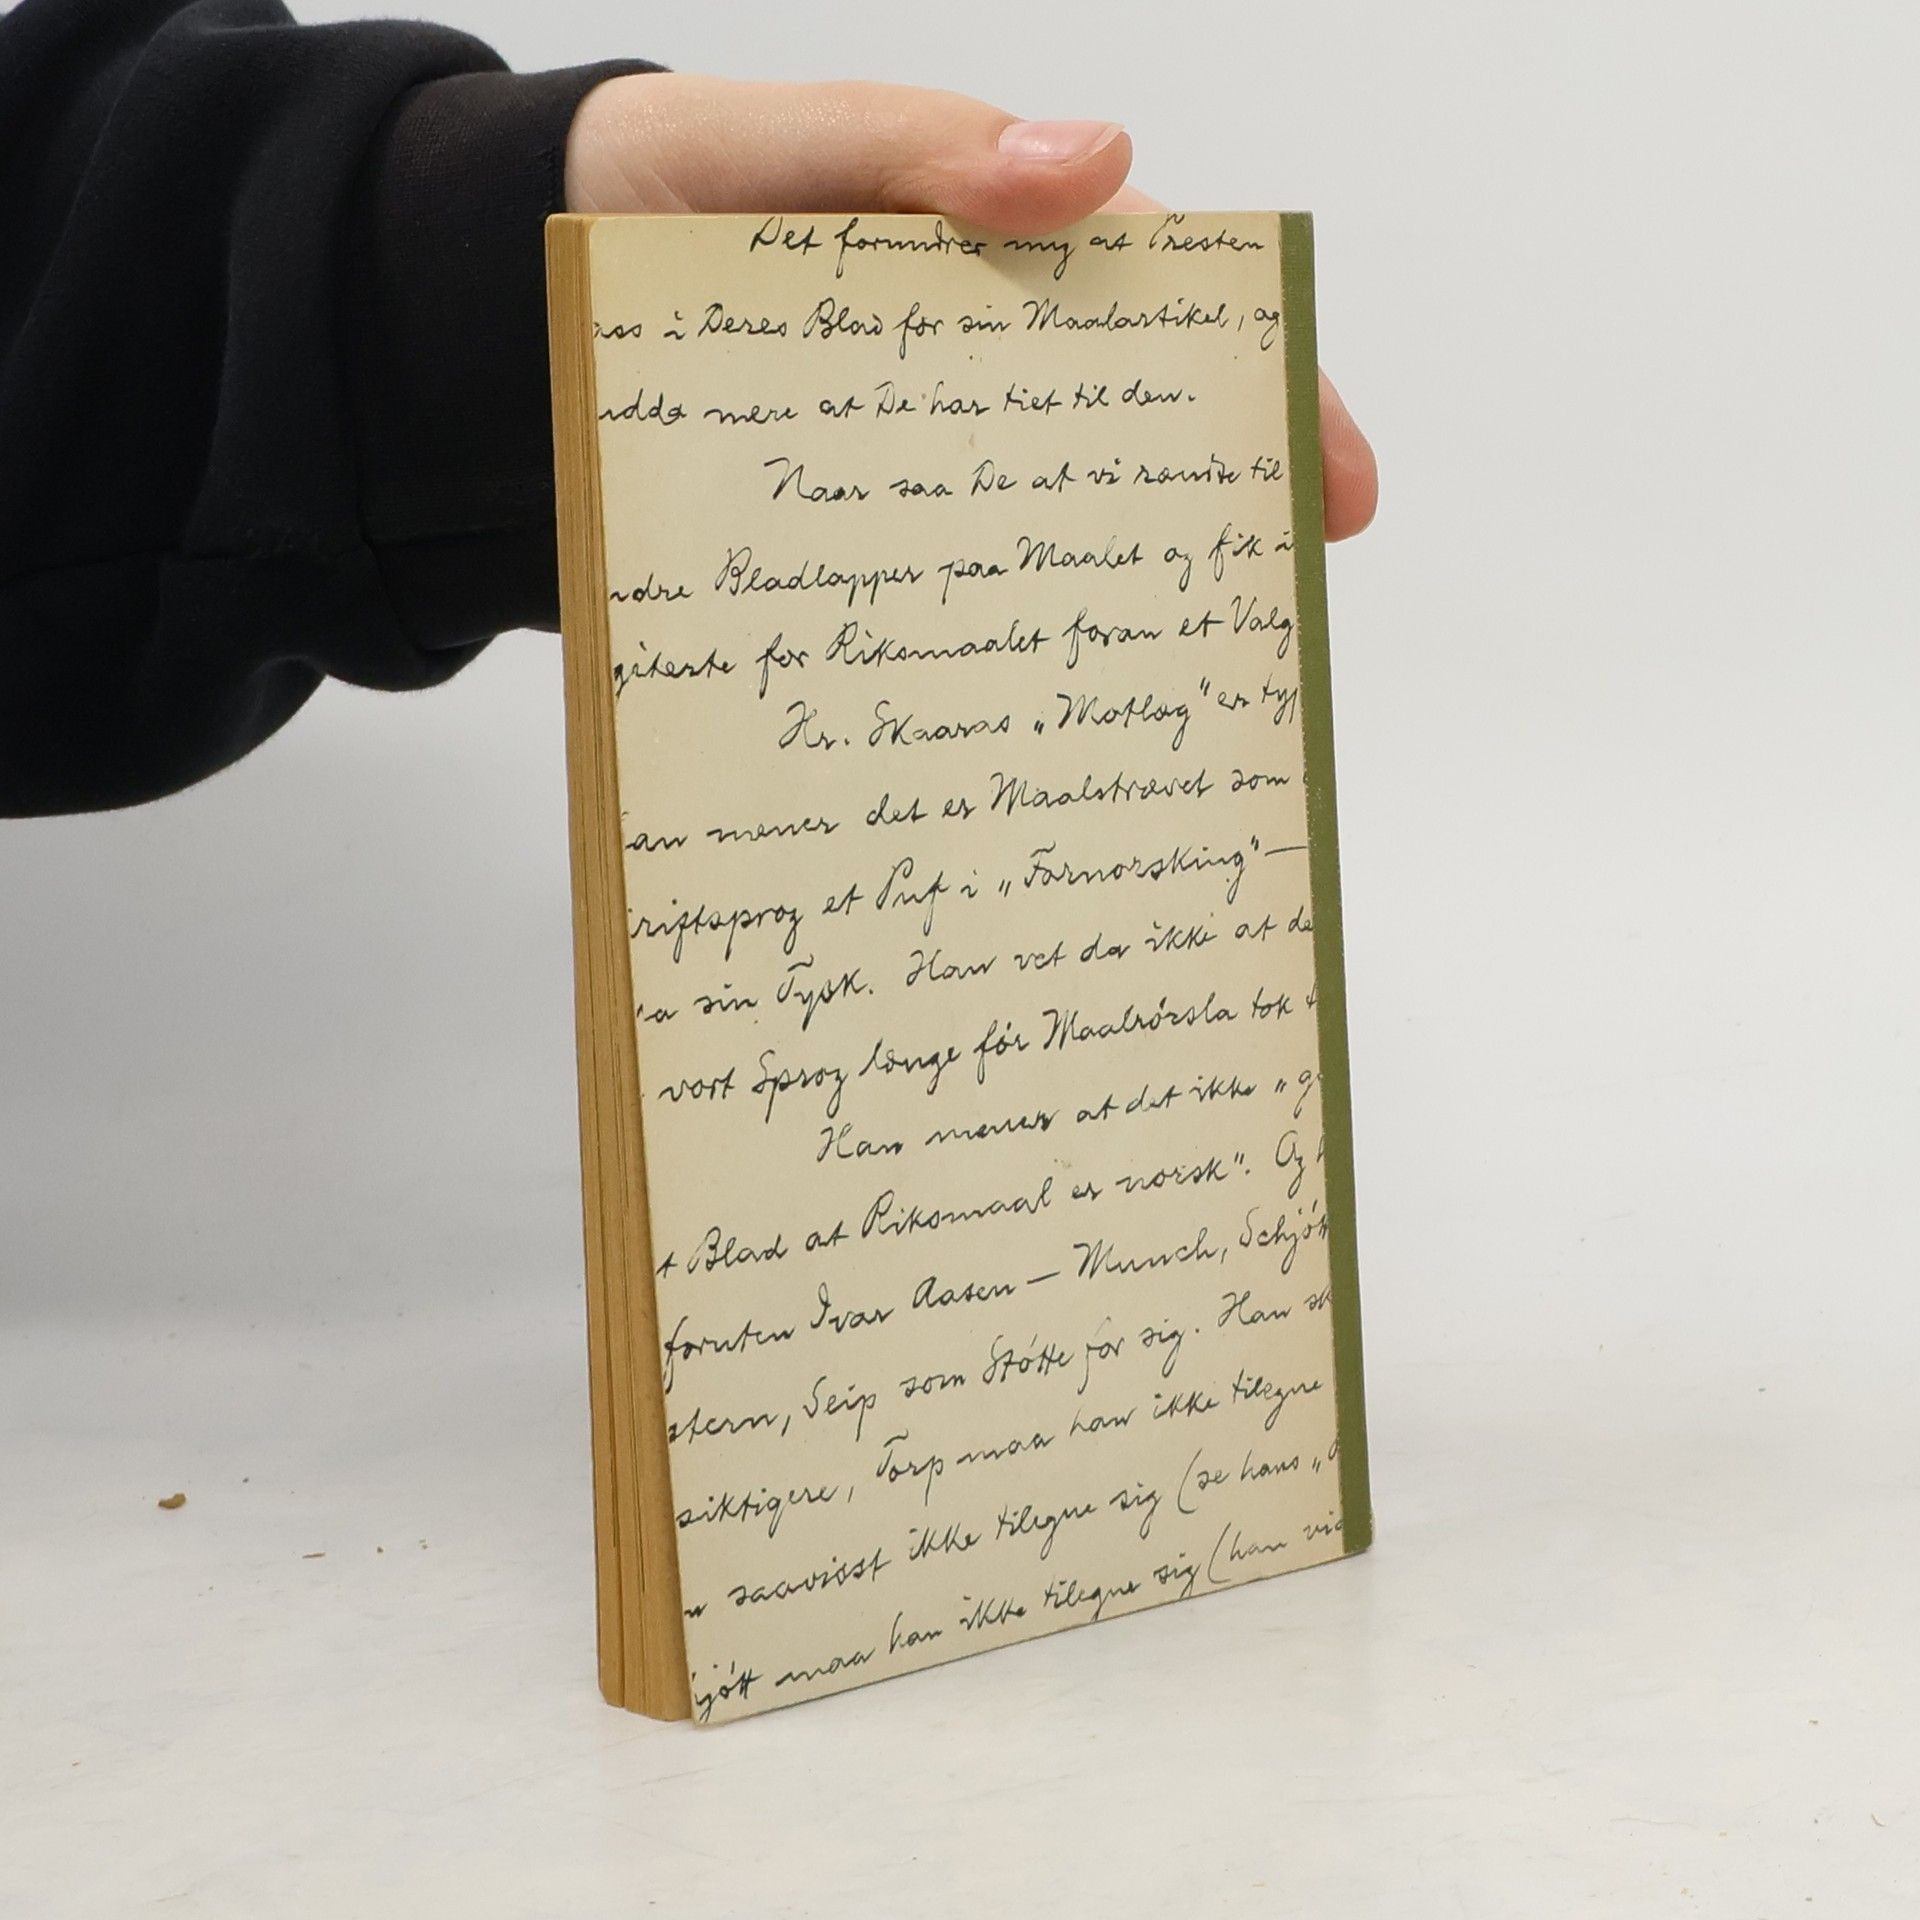 Det forundrer mig at Presten
ass i Deres Blad for sin Maalartikel, og
adda mere at De har tiet til den.
Naar saa De at vi rændte til
ndre Bladlapper paa Maalet og fik i
giterte for Riksmaalet foran et Valg
Hr. Skaaras „Motlæg" er typ
an mener det er Maalstrævet som
riftsprog et Puf i „Fornorsking" —
a sin Tysk. Han vet da ikke at de
vort Sprog længe før Maalrørsla tok
Han mener at det ikke „g
t Blad at Riksmaal er norsk". Og h
foruten Ivar Aasen — Munch, Schjøtt
stern, Seip som Støtte for sig. Han sk
siktigere, Torp maa han ikke tilegne
saavisst ikke tilegne sig (se hans „
jøtt maa han ikke tilegne sig (han vid